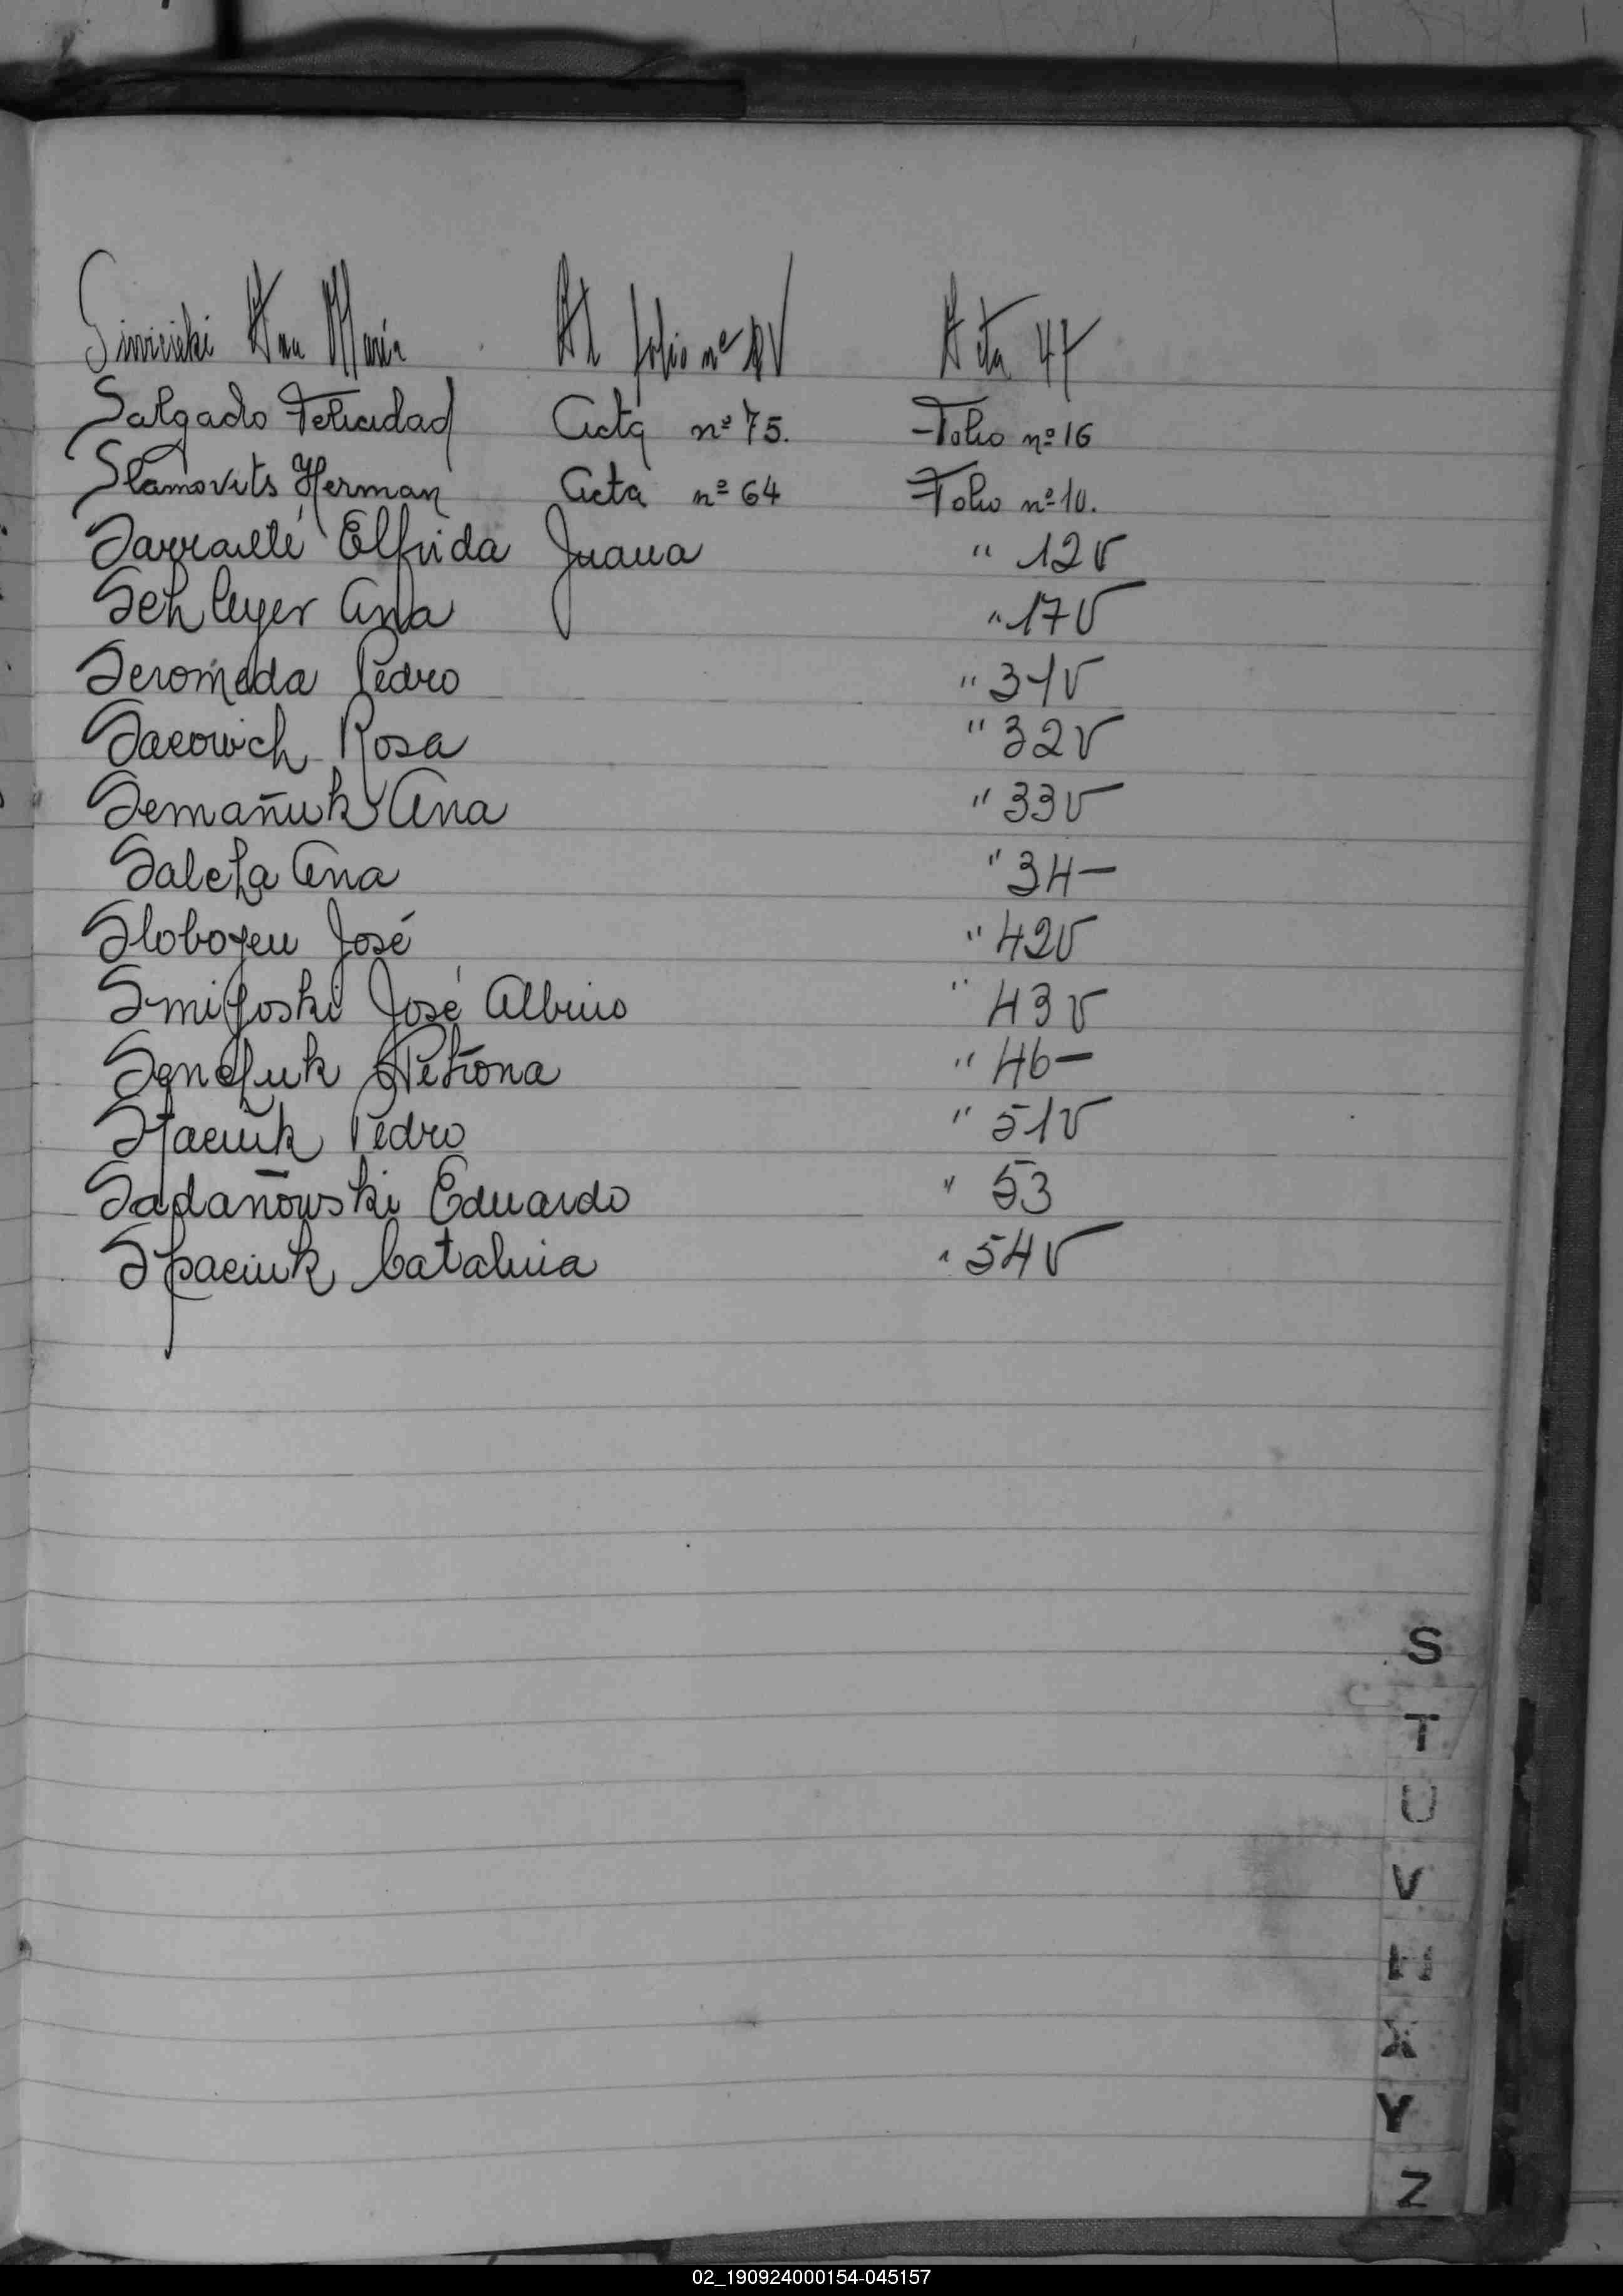 Ana María Al folio nº Acta 47
Salgado Felicidad Acta nº 75. Folio nº 16
Slamovits Herman Acta nº 64 Folio nº 10.
Sarraillé Elfrida Juana " 12v
Schleyer Ana " 17v
Seromeda Pedro " 31v
Sacowich Rosa " 32v
Semañuk Ana " 33v
Ana " 34-
José " 42v
José Albino " 43v
Petrona " 46-
Pedro " 51v
Sadañowski Eduardo " 53
Spaciuk Catalina " 54v
S
T
U
V
X
Y
Z
02_190924000154-045157